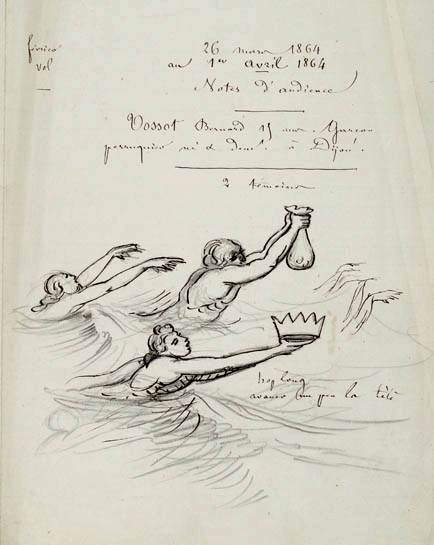 26 mars 1864
au 1er Avril 1864
Notes d'audience
vol
Vossot Bernard 15 ans. Garçon
perruquier né & demt. à Dijon.
2 témoins
trop long
avancer un peu la tête